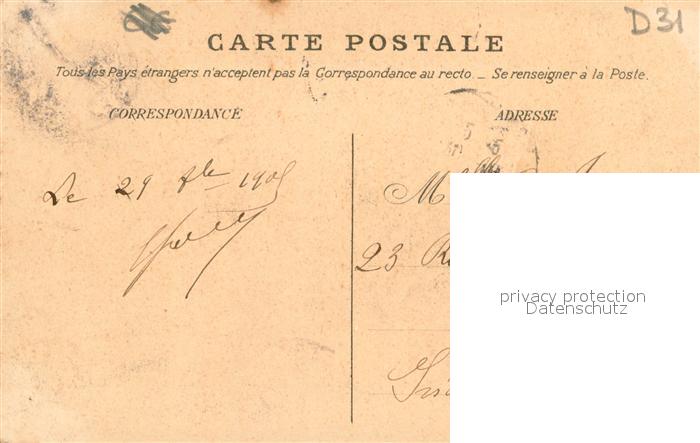 D31
CARTE POSTALE
Tous les Pays étrangers n'acceptent pas la Correspondance au recto _ Se renseigner à la Poste.
CORRESPONDANCE
ADRESSE
Le 29 1905
M
23 R
privacy protection
Datenschutz